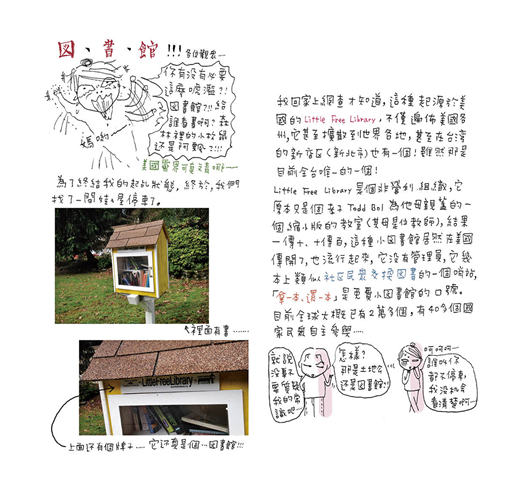 図、書、館!!! 各位觀眾—
你有沒有必要
這麼唬爛?!
圖書館?!! 給
誰看書啊? 森
林裡的小松鼠
還是阿貓?!!!
媽喲
美國電界可真夠哪——
為了終結我的起乩狀態,終於,我們
找了一間娃娃屋停車了。
裡面有書……
LittleFreeLibrary
上面還有個牌子…… 它還真是個…圖書館!!!
我回家上網查才知道,這種起源於美
國的 Little Free Library,不僅遍佈美國各
州,它甚至擴散到世界各地,甚至在台灣
的新店區(新北市)也有一個!雖然那是
目前全台唯一的一個!
Little Free Library 是個非營利組織,它
原本只是個老子 Todd Bol 為他母親蓋的一
個縮小版的教室(其母是位教師),結果
一傳十、十傳百,這種小圖書館居然在美國
傳開了,也流行起來,它沒有管理員,它基
本上類似社區民眾交換圖書的一個哨站,
「拿一本、還一本」是免費小圖書館的口號。
目前全球大概已有2萬多個,有40多個國
家民眾自主參與……
就說
沒事不
要質疑
我的常
識吧—
怎樣?
那是土地公
還是圖書館!
呵呵呵—
誰叫你
都不停車,
我沒機會
看清楚啊—